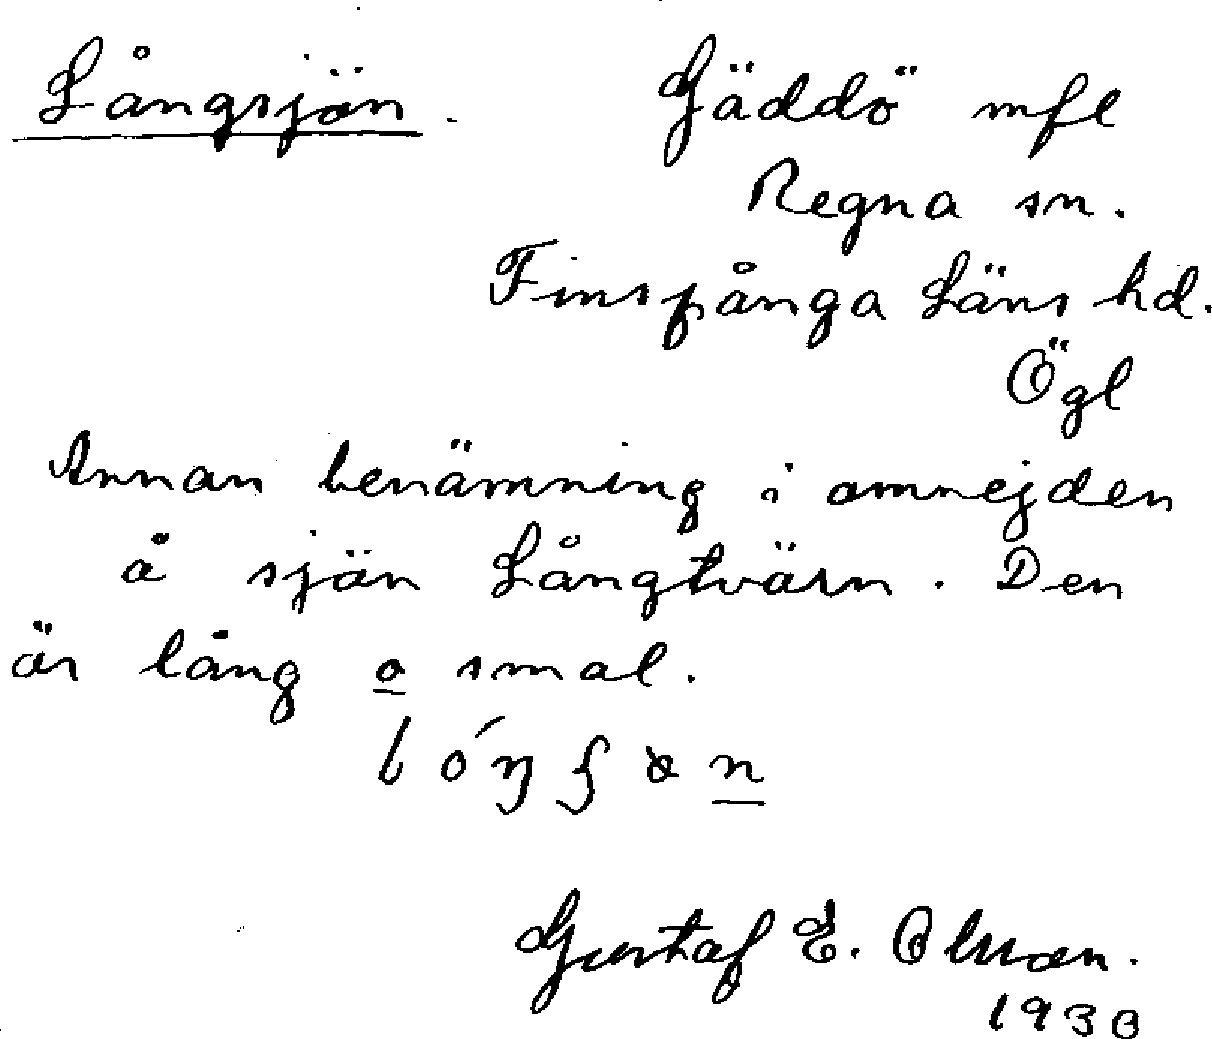 Långsjön. Gäddö mfl
Regna sn.
Finspånga Läns hd.
Ögl
Annan benämning i omnejden
å sjön Långtvärn. Den
är lång o smal.
Gustaf E. Olsson.
1930